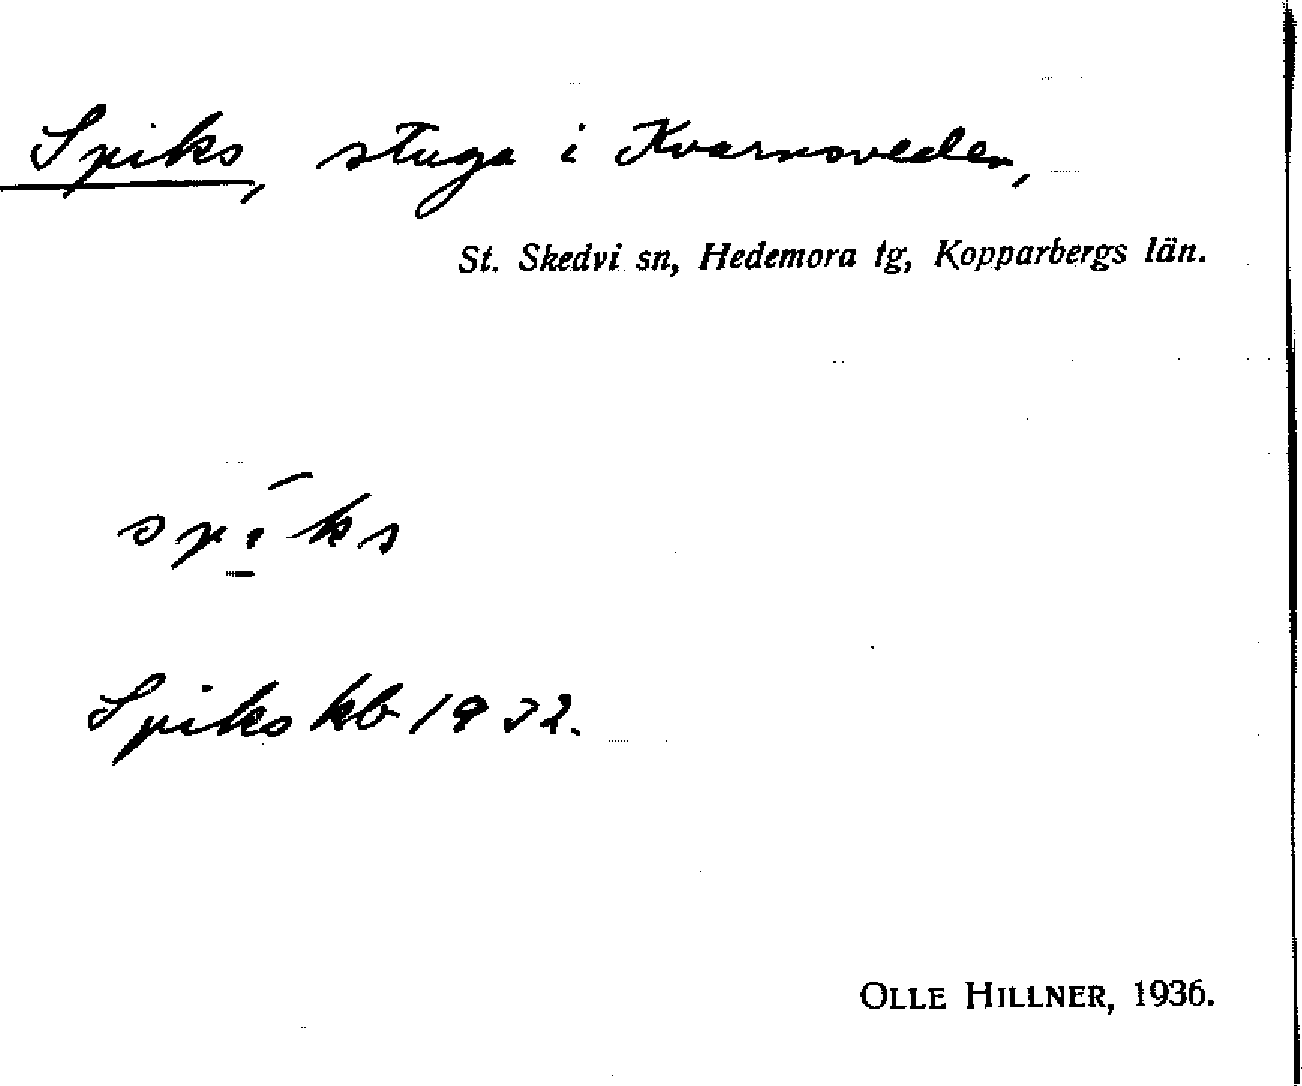 Spiks, stuga i Kvarnsveden,
St. Skedvi sn, Hedemora tg, Kopparbergs län.
spí̲ks
Spiks kb 1932.
OLLE HILLNER, 1936.